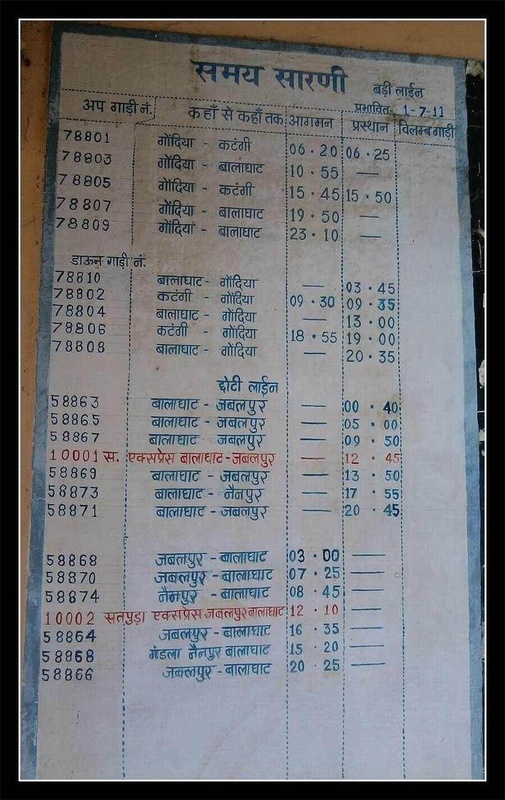 समय सारणी
बड़ी लाईन
प्रभावित 1-7-11
अप गाड़ी नं. कहाँ से कहाँ तक आगमन प्रस्थान विलम्ब गाड़ी
78801 गोंदिया - कटंगी 06.20 06.25
78803 गोंदिया - कटंगी 10.55 —
78805 गोंदिया - कटंगी 15.45 15.50
78807 गोंदिया - बालाघाट 19.50 —
78809 गोंदिया - बालाघाट 23.10 —
डाऊन गाड़ी नं.
78810 बालाघाट - गोंदिया — 03.45
78802 कटंगी - गोंदिया 09.30 09.35
78804 बालाघाट - गोंदिया — 13.00
78806 कटंगी - गोंदिया 18.55 19.00
78808 बालाघाट - गोंदिया — 20.35
छोटी लाईन
58863 बालाघाट - जबलपुर — 00.40
58865 बालाघाट - जबलपुर — 05.00
58867 बालाघाट - जबलपुर — 09.50
10001 स. एक्सप्रेस बालाघाट - जबलपुर — 12.45
58869 बालाघाट - जबलपुर — 13.50
58873 बालाघाट - नैनपुर — 17.55
58871 बालाघाट - जबलपुर — 20.45
58868 जबलपुर - बालाघाट 03.00 —
58870 जबलपुर - बालाघाट 07.25 —
58874 नैनपुर - बालाघाट 08.45 —
10002 सतपुड़ा एक्सप्रेस जबलपुर बालाघाट 12.10 —
58864 जबलपुर - बालाघाट 16.35 —
58868 मंडला नैनपुर बालाघाट 15.20 —
58866 जबलपुर - बालाघाट 20.25 —